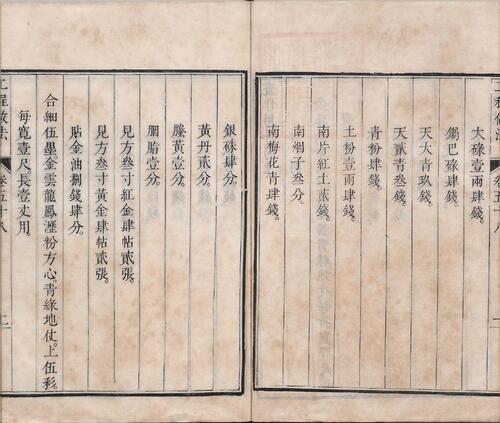 大碌壹兩肆錢。
鍋巴碌肆錢。
天大青玖錢。
天貳青叁錢。
青粉肆錢。
土粉壹兩肆錢。
南片紅土貳錢。
南烟子叁分。
南梅花青肆錢。
銀硃肆分。
黃丹貳分。
籐黃壹分。
胭脂壹分。
見方叁寸紅金肆帖貳張。
見方叁寸黃金肆帖貳張。
貼金油捌錢肆分。
合細伍墨。金雲龍鳳瀝粉方心。青綠地仗。上伍彩。
每寬壹尺。長壹丈用。
工程做法
卷五十八